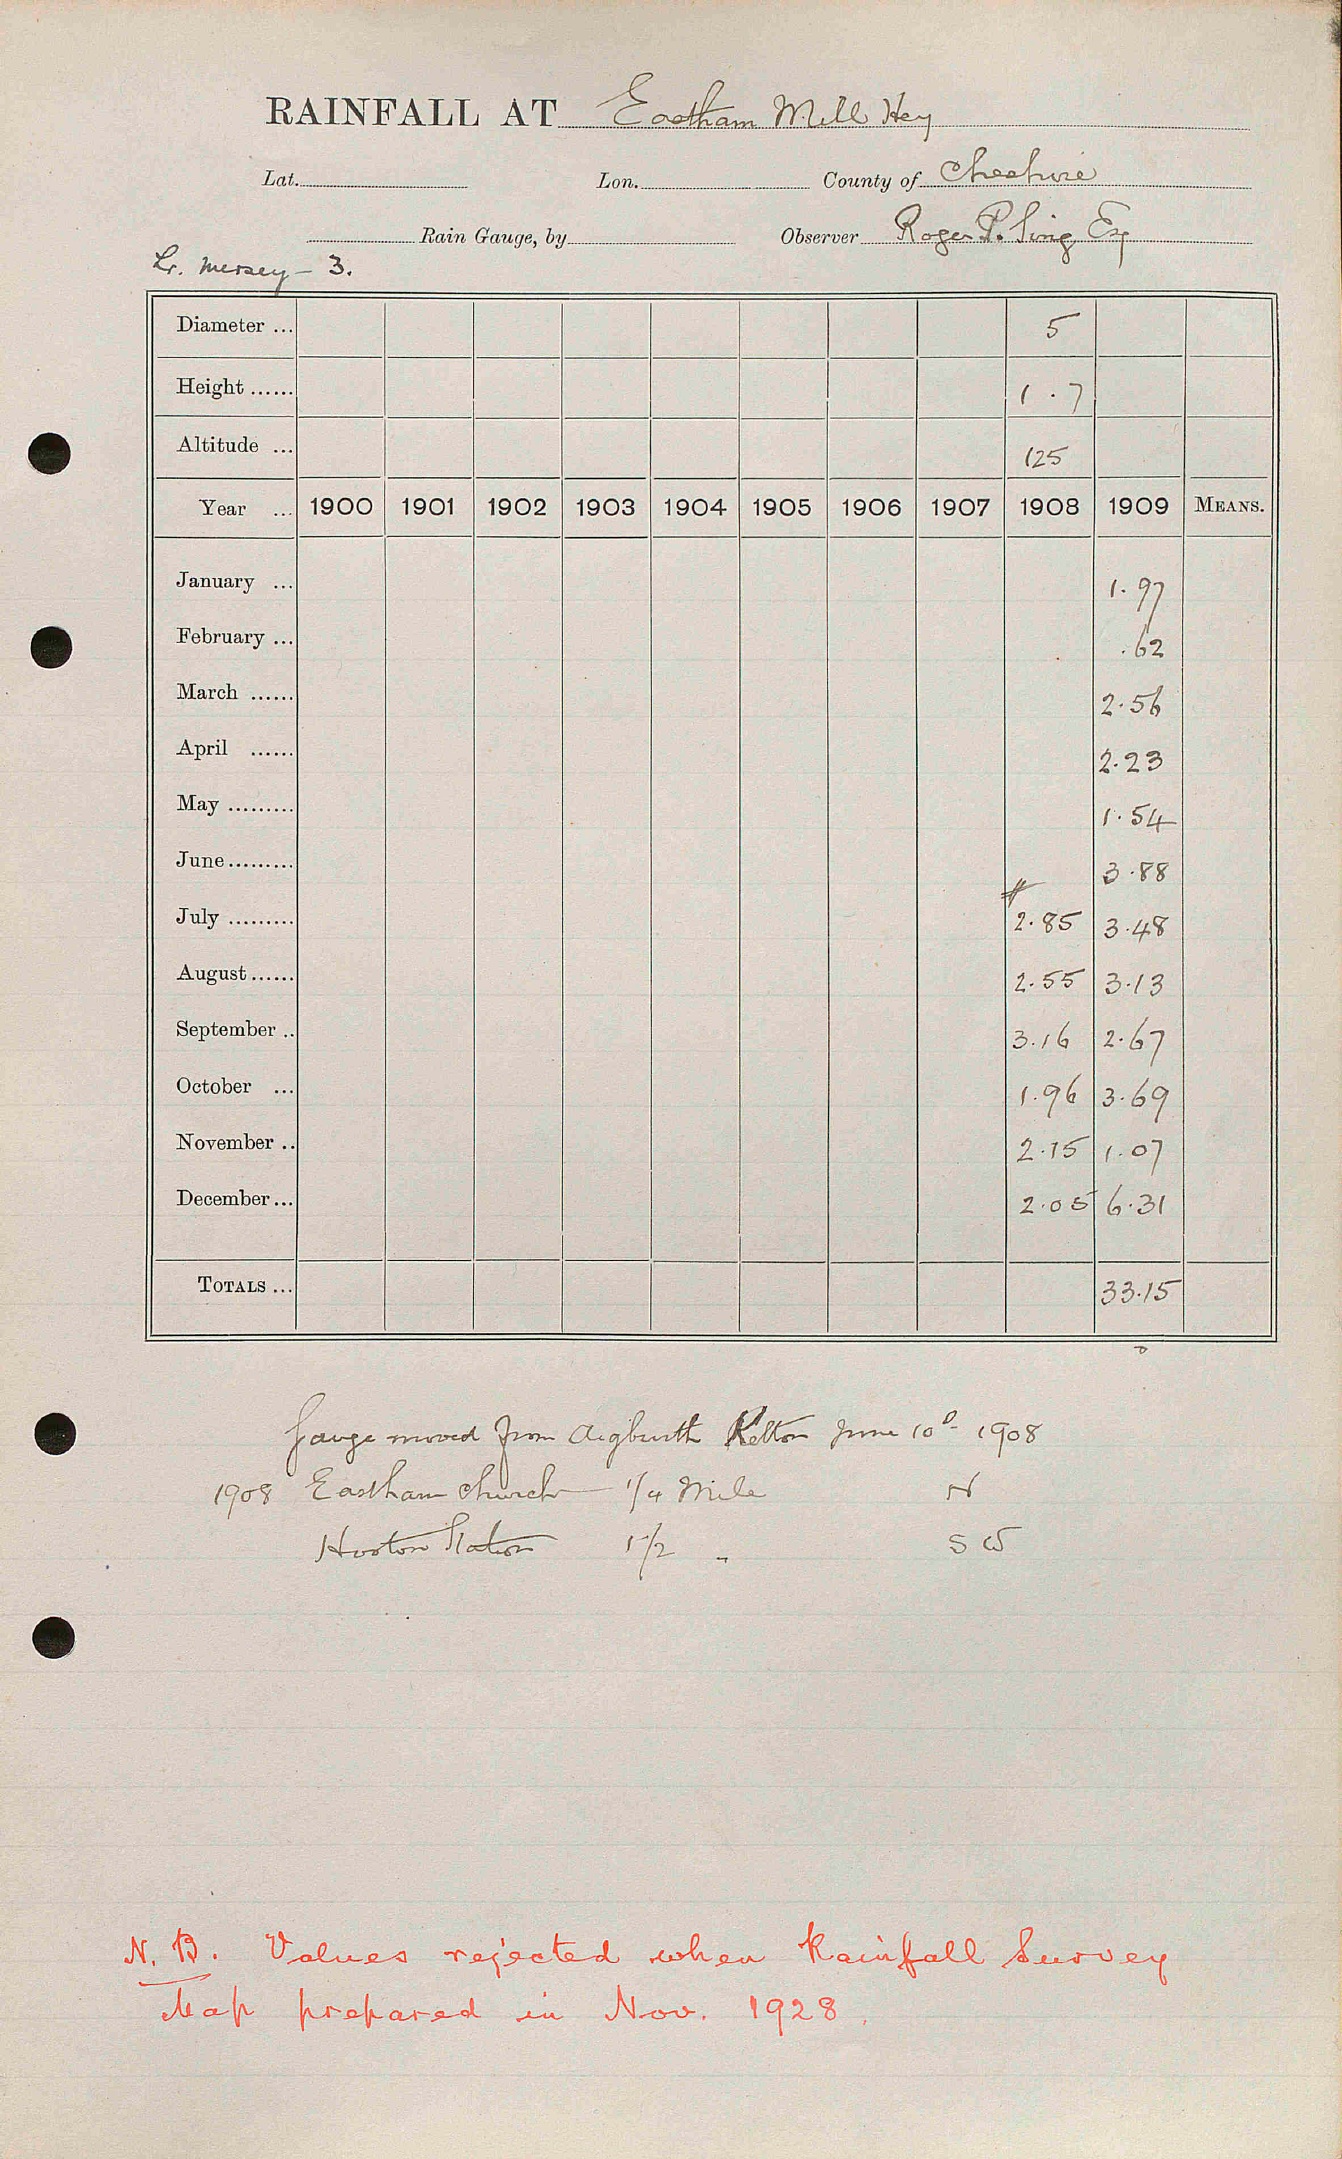 RAINFALL AT Eastham Mill Hey
Lat. Lon. County of Cheshire
Rain Gauge, by Observer Roger P. Sing Esq
Lr. Mersey – 3.
Diameter ... 5
Height ...... 1 . 7
Altitude ... 125
Year ... 1900 1901 1902 1903 1904 1905 1906 1907 1908 1909 MEANS.
January ... 1.97
February ... .62
March ...... 2.56
April ...... 2.23
May ......... 1.54
June ......... 3.88
July ......... 2.85 3.48
August ...... 2.55 3.13
September .. 3.16 2.67
October ... 1.96 3.69
November .. 2.15 1.07
December ... 2.05 6.31
TOTALS ... 33.15
Gauge moved from Aigburth June 10 1908
1908 Eastham Church 1/4 Mile N
Hooton Station 1 1/2 " S W
N. B. Values rejected when Rainfall Survey
Map prepared in Nov. 1928.